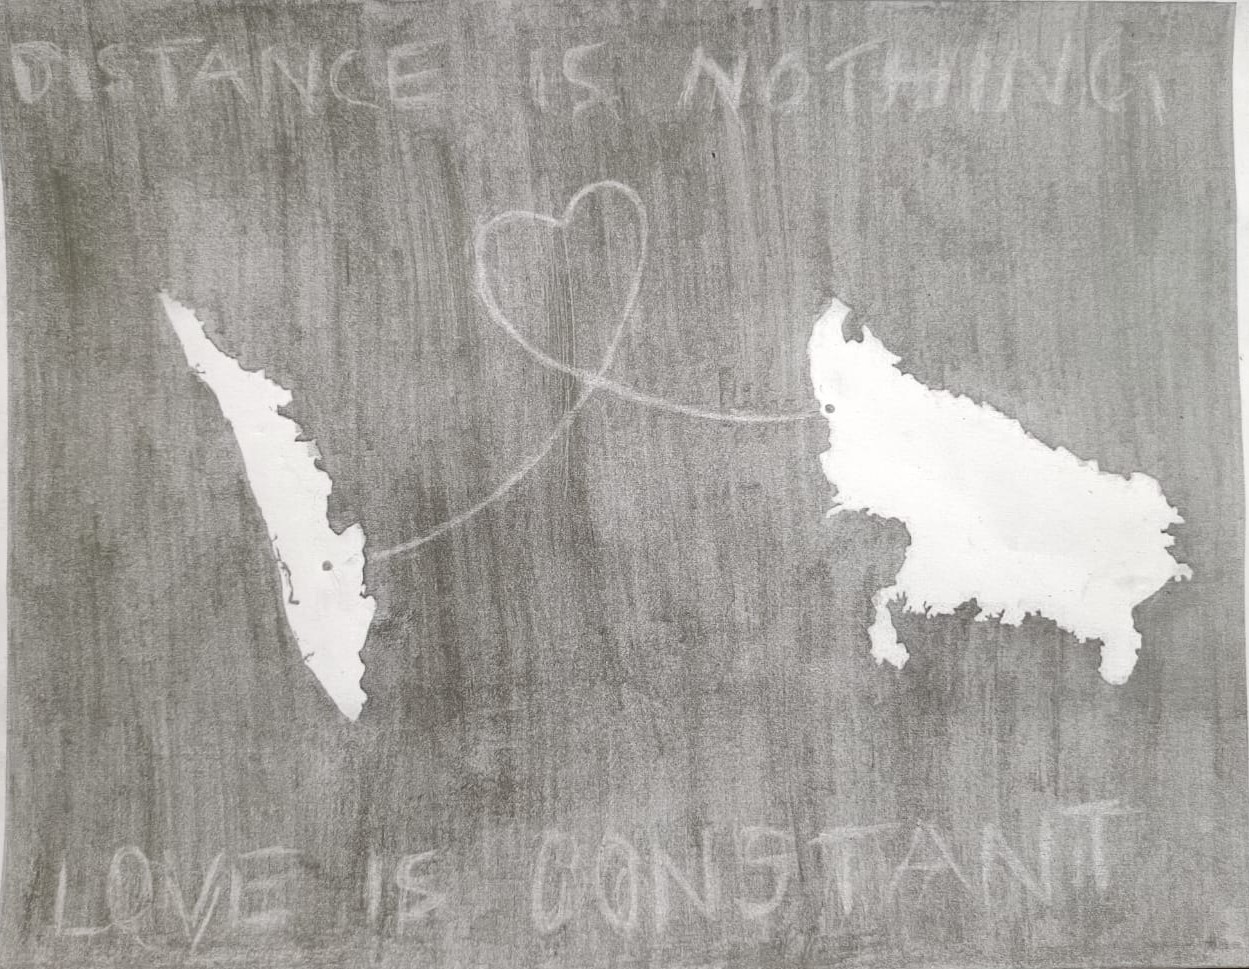 DISTANCE IS NOTHING
LOVE IS CONSTANT